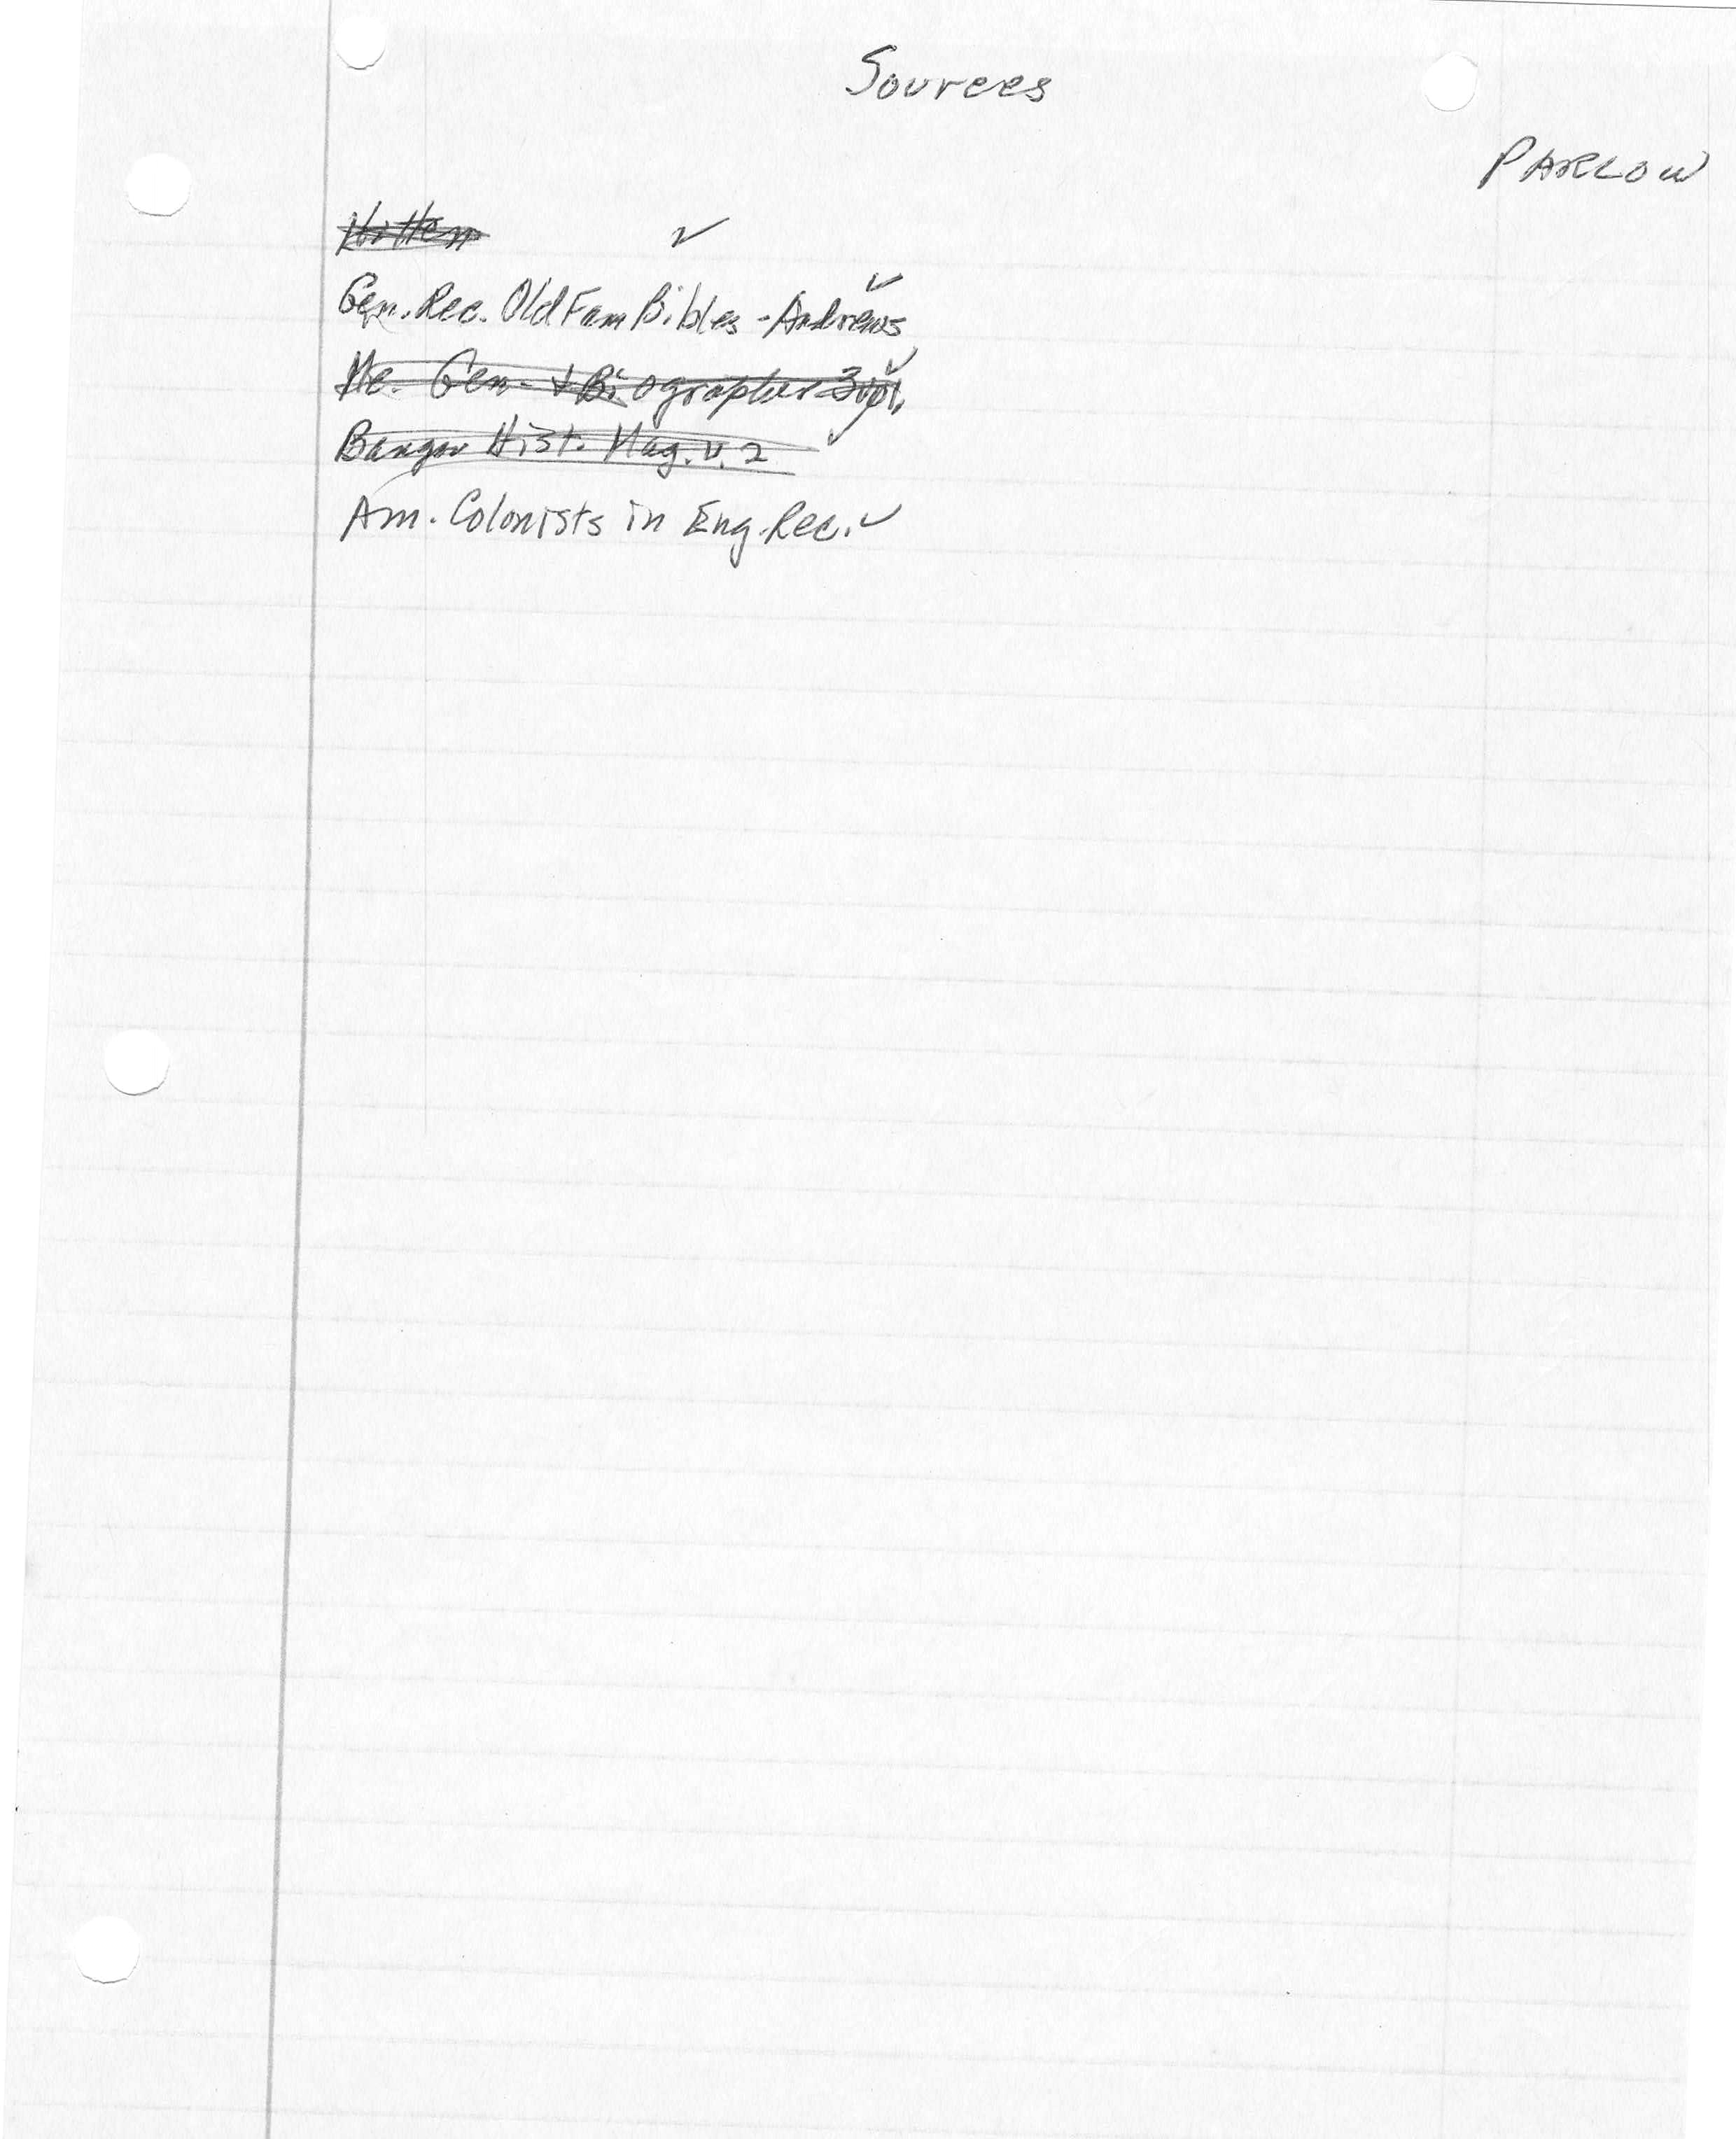 Sources
PARLOW
Hotten ✓
Gen. Rec. Old Fam Bibles - Andrews ✓
Me. Gen. & Biographer 3 vol. ✓
Bangor Hist. Mag. v. 2 ✓
Am. Colonists in Eng. Rec. ✓